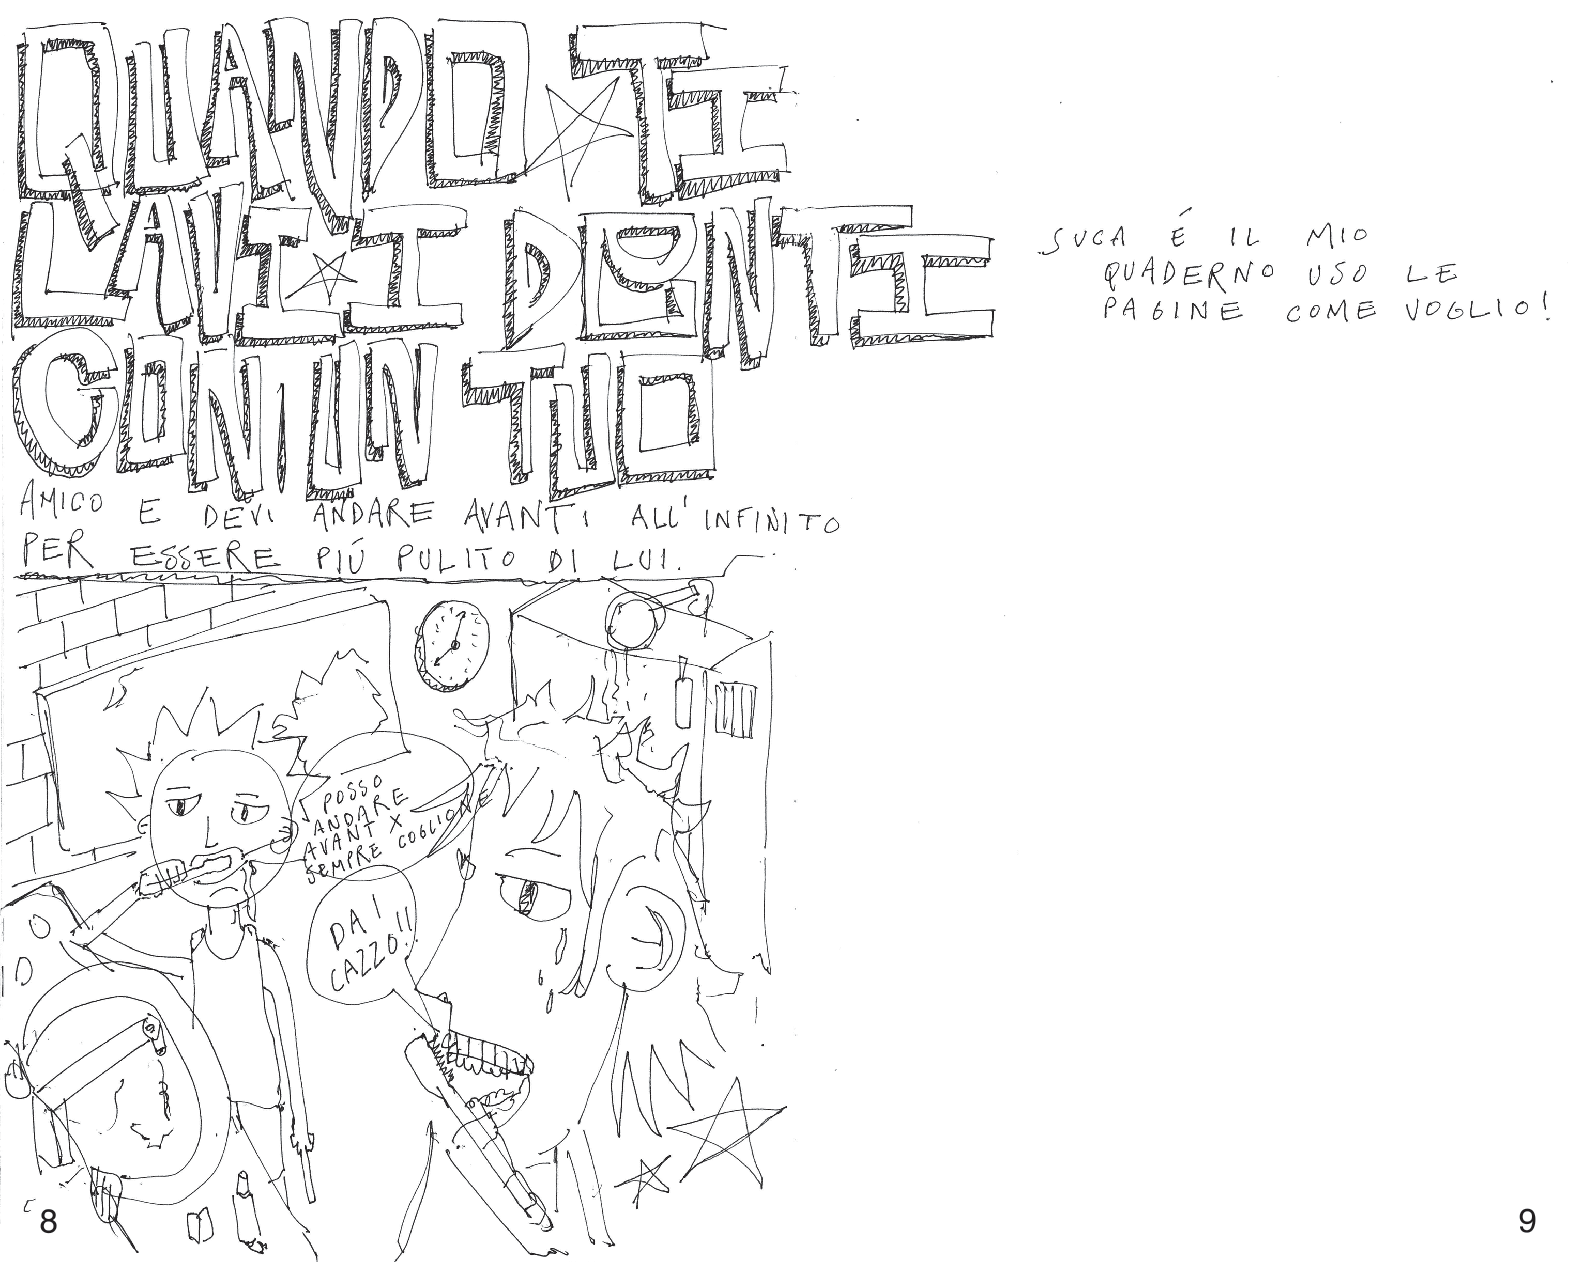 QUANDO TI
LAVI I DENTI
CON UN TUO
AMICO E DEVI ANDARE AVANTI ALL'INFINITO
PER ESSERE PIÚ PULITO DI LUI.
POSSO
ANDARE
AVANTI X
SEMPRE COGLIONE
DAI
CAZZO!!
8
SUCA É IL MIO
QUADERNO USO LE
PAGINE COME VOGLIO!
9